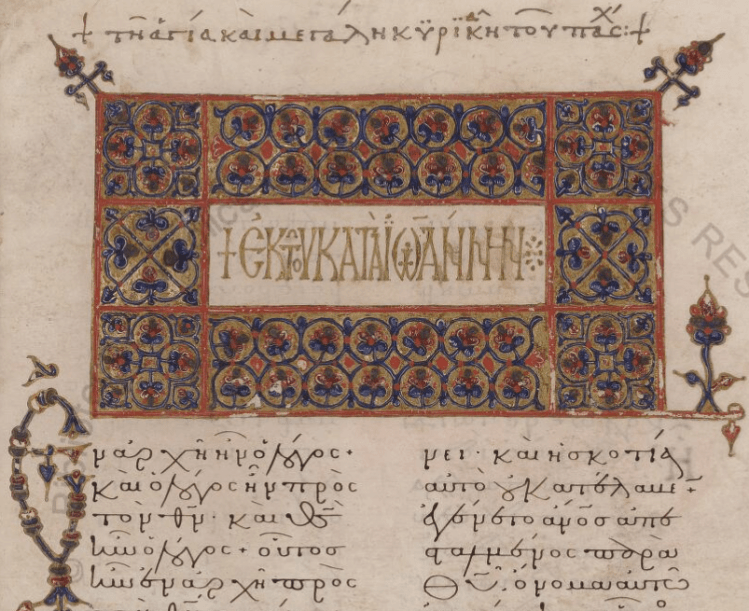 + τῇ ἁγίᾳ καὶ μεγάλῃ κυριακῇ τοῦ πάσχ: +
+ ἐκ τοῦ κατὰ ἰωάννην
Ἐν ἀρχῆ ἦν ὁ λόγος·
καὶ ὁ λόγος ἦν πρὸς
τὸν θν· καὶ θς
ἦν ὁ λόγος· οὗτος
ἦν ἐν ἀρχῆ πρὸς
νει· καὶ ἡ σκοτία
αὐτὸ οὐ κατέλαβε·
ἐγένετο ἄνος ἀπε
σταλμένος παρὰ
θυ· ὄνομα αὐτῶ